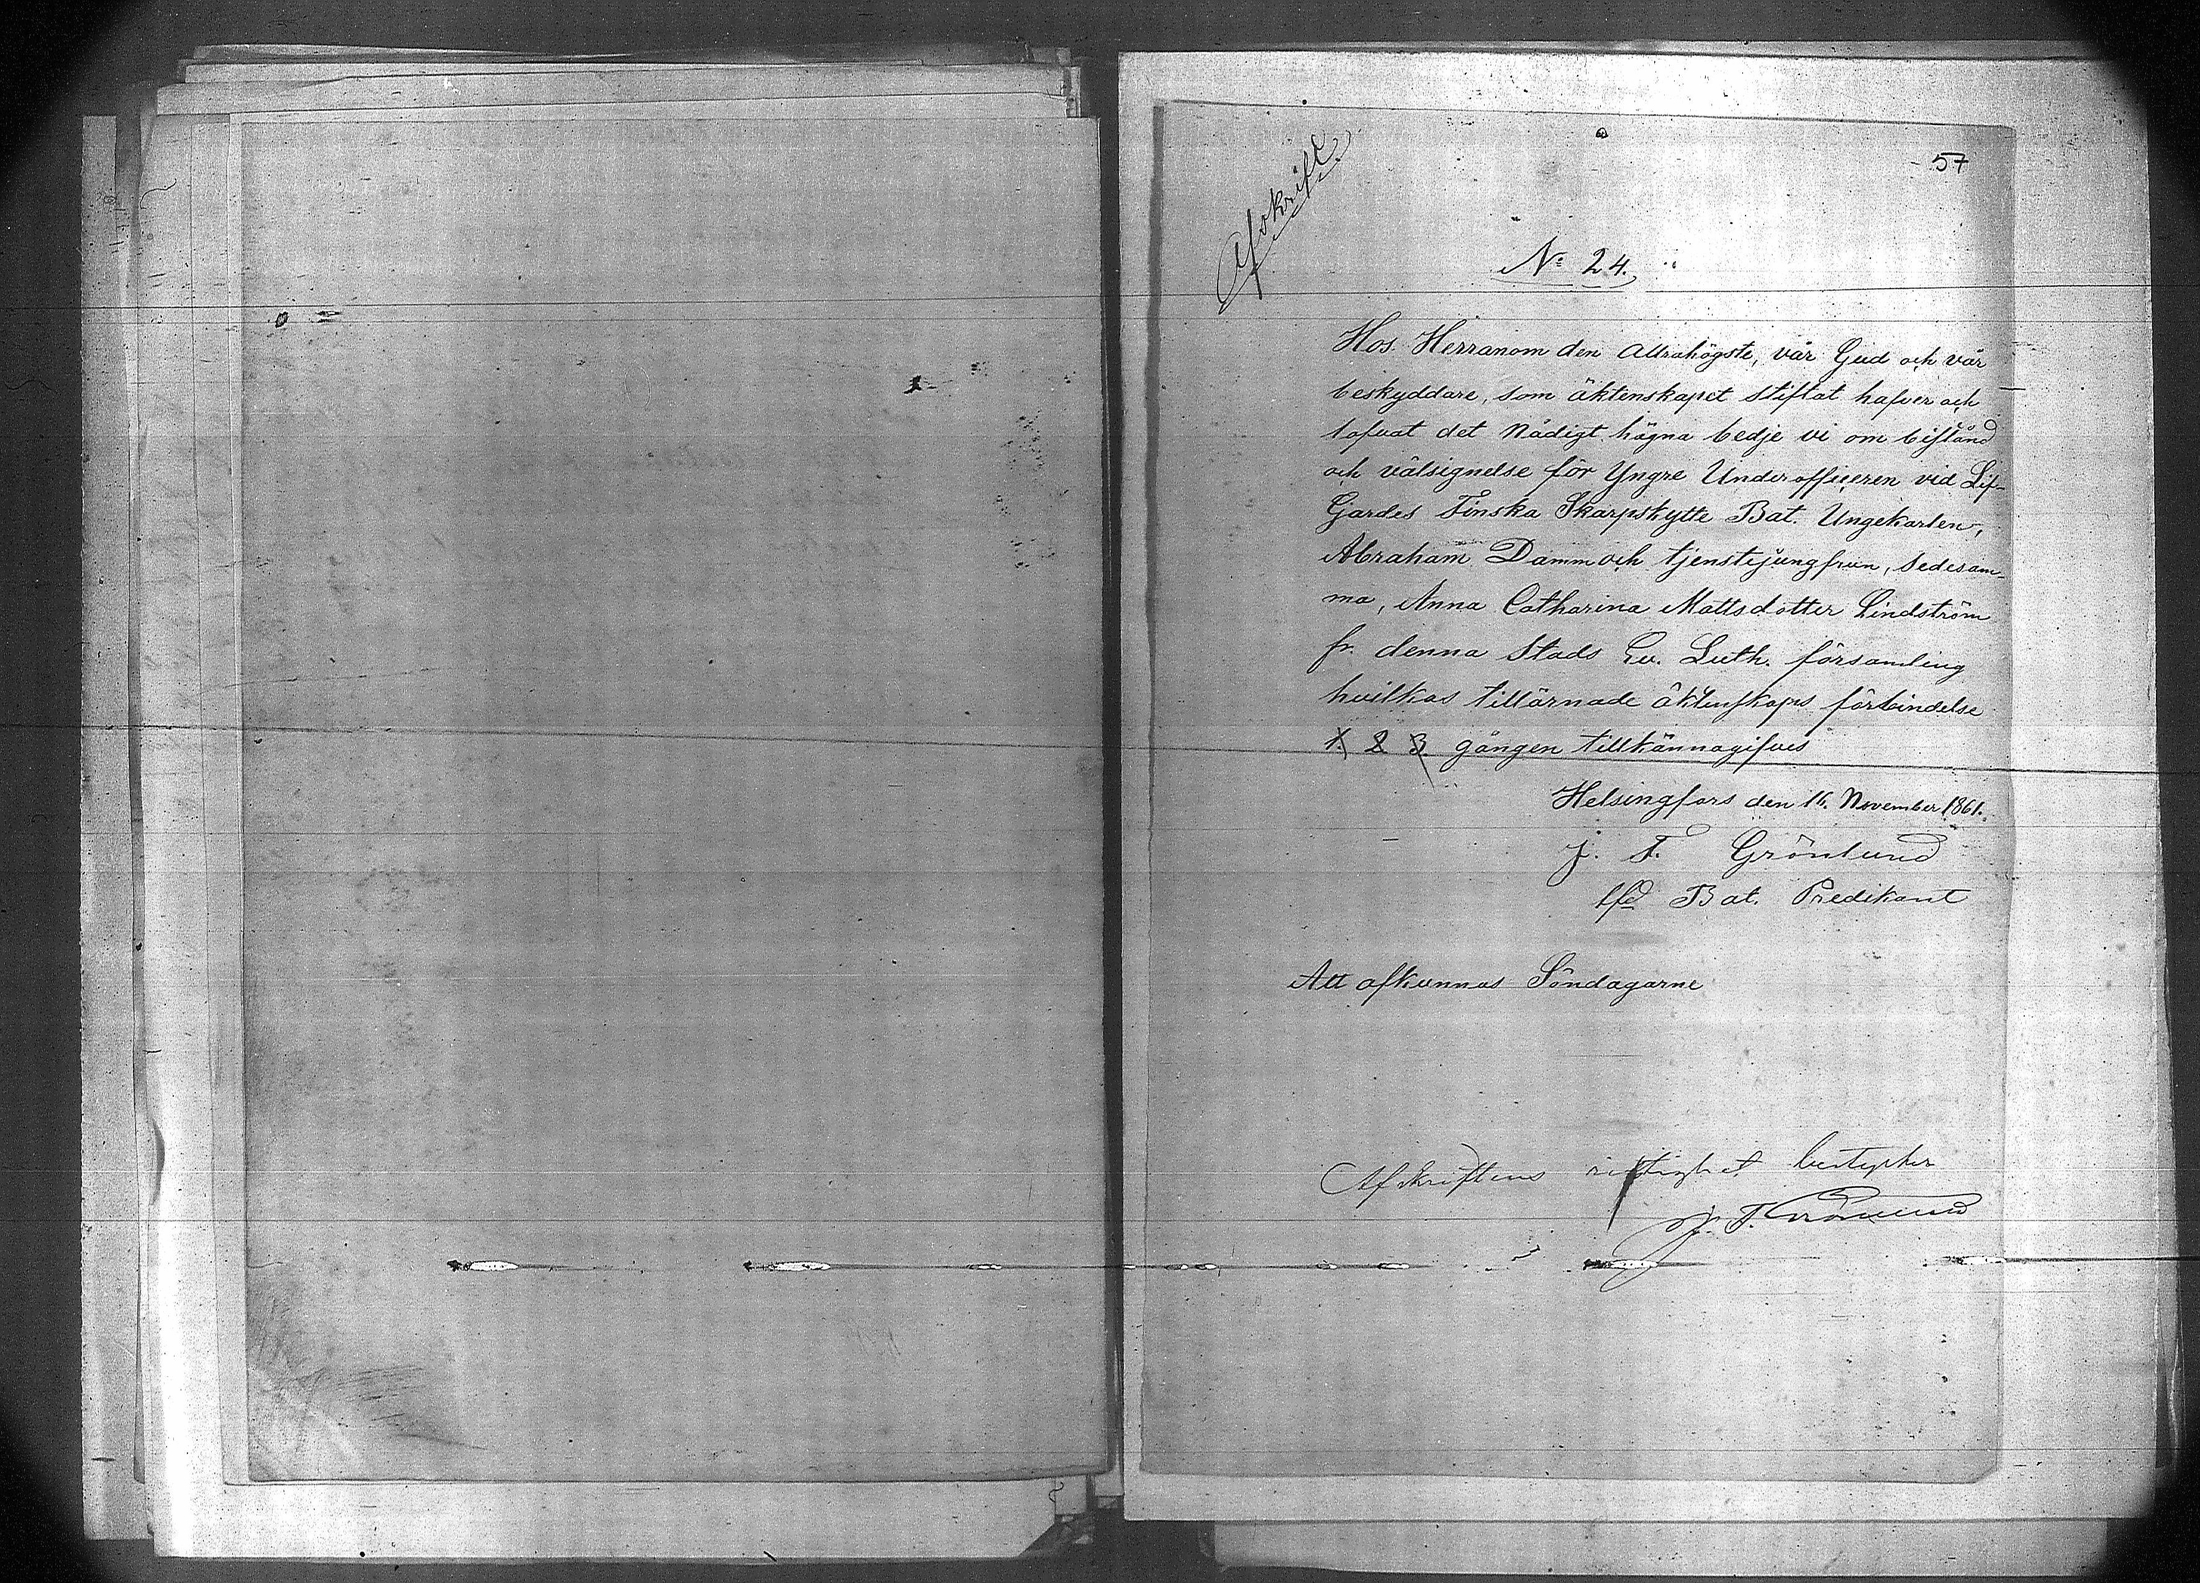 57
Afskrift.
No 24.
Hos Herranom den Allrahögste, vår Gud och vår
beskyddare, som äktenskapet stiftat hafver och
lofvat det Nådigt hägna bedje vi om bistånd
och välsignelse för Yngre Underofficeren vid Lif-
Gardes Finska Skarpskytte Bat. Ungekarlen,
Abraham Damm och tjenstejungfrun, sedesam-
ma, Anna Catharina Mattsdotter Lindström
fr. denna Stads Ev. Luth. församling
hvilkas tillärnade äktenskaps förbindelse
1. 2 3. gången tillkännagifves
Helsingfors den 16. November 1861.
J. F. Grönlund
tfd Bat. Predikant
Att afkunnas Söndagarne
Afskriftens riktighet bestyrker
J. F. Grönlund